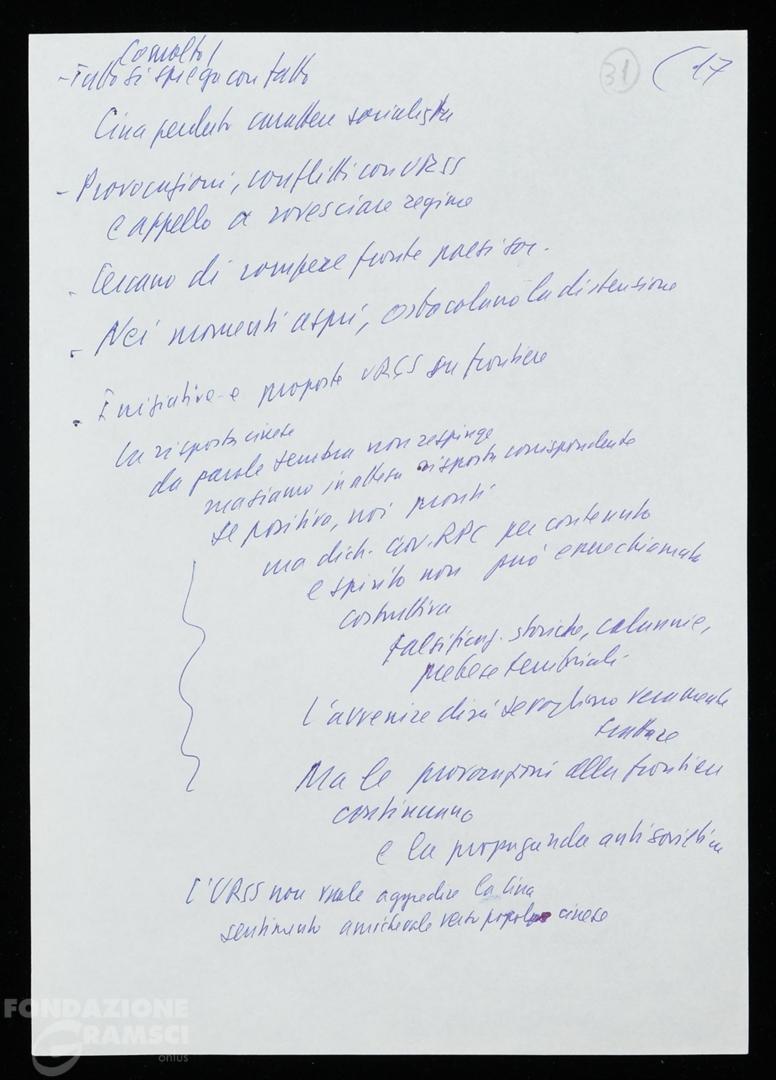 31
(17
- Tutto si spiega con fatto
Cina perduto carattere socialista
- Provocazioni, conflitti con URSS
e appello a rovesciare regime
- Cercano di rompere fronte paesi soc.
- Nei momenti aspri, ostacolano la distensione
- Iniziative e proposte URSS su frontiere
la risposta cinese
da parole sembra non respinge
ma siamo in attesa risposta corrispondente
se positiva, noi pronti
ma dich. Gov. RPC per contenuto
e spirito non può essere chiamata
costruttiva
falsificaz. storiche, calunnie,
pretese territoriali.
L'avvenire dirà se vogliono veramente
trattare
Ma le provocazioni alla frontiera
continuano
e la propaganda antisovietica
L'URSS non vuole aggredire la Cina
sentimento amichevole verso popolo cinese
FONDAZIONE
GRAMSCI
onlus